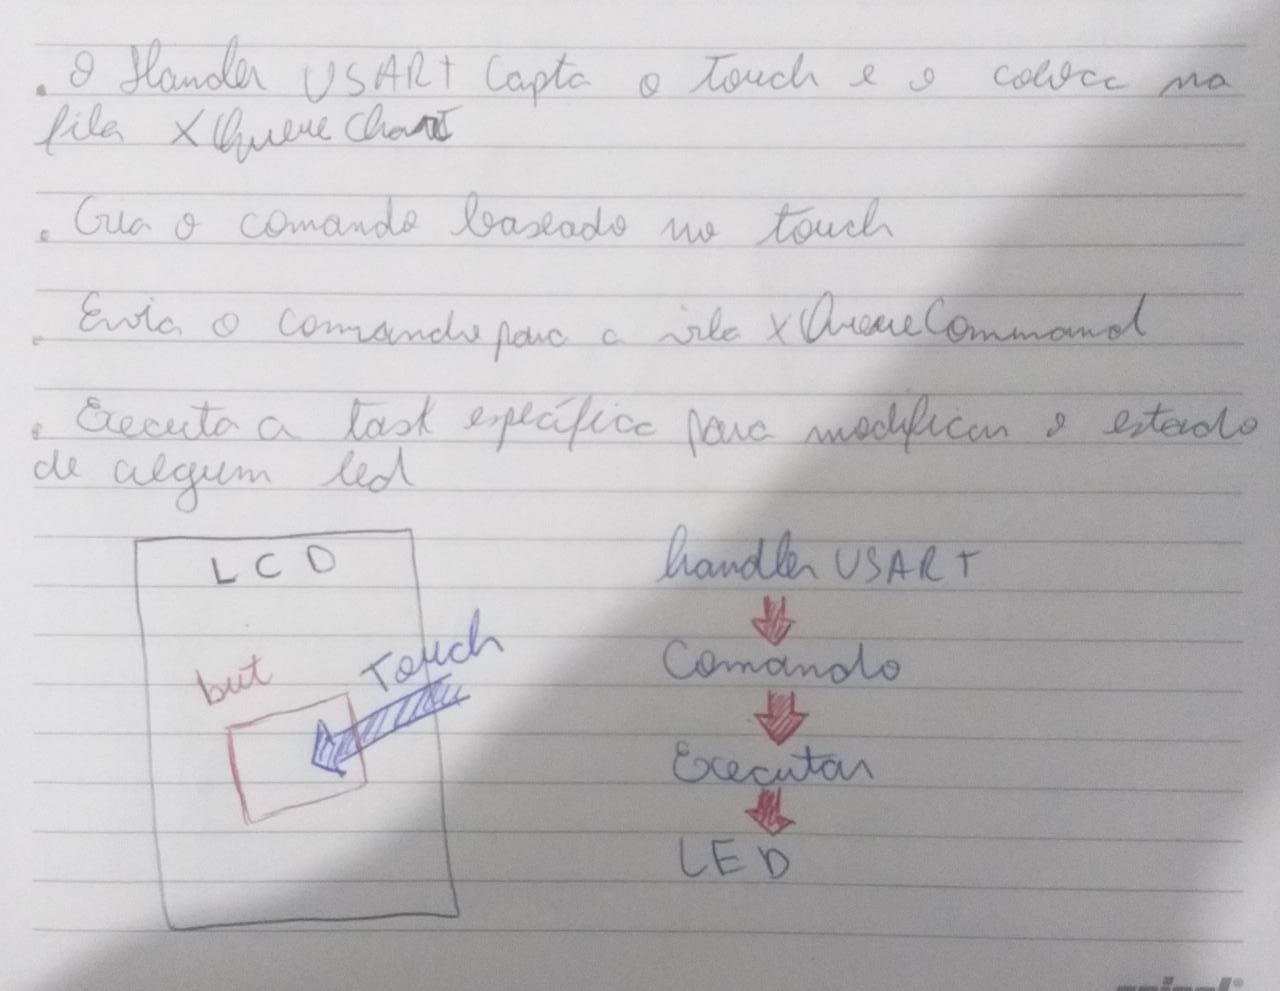 . O Handler USART Capta o touch e o coloca na
fila xQueueChar
. Cria o comando baseado no touch
. Envia o comando para a fila xQueueCommand
. Executa a task específica para modificar o estado
de algum led
LCD
but
Touch
handler USART
Comando
Executar
LED